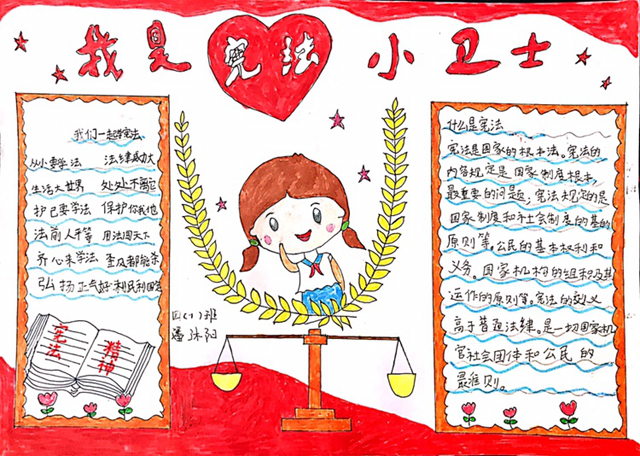 我是宪法小卫士
我们一起学宪法
从小要学法 法律威力大
生活大世界 处处不离它
护己要学法 保护你我他
法前人平等 用法闯天下
齐心来学法 老及都能亲
弘扬正气好 利民利国家
宪法
精神
四(1)班
潘沐阳
什么是宪法
宪法是国家的根本法。宪法的
内容规定是国家制度根本,
最重要的问题;宪法规定的是
国家制度和社会制度的基的
原则等。公民的基本权利和
义务。国家机构的组织及其
运作的原则等。宪法的效义
高于普通法律。是一切国家机
官社会团体和公民的
最准则。